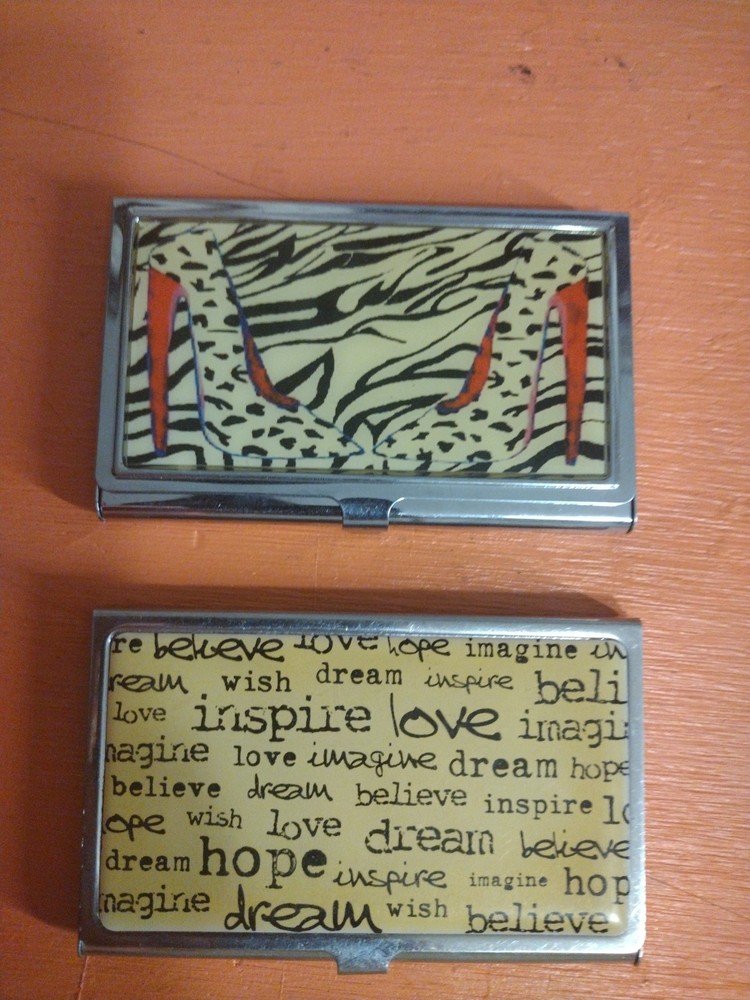 re believe love hope imagine in
ream wish dream inspire beli
love inspire love imagi
nagine love imagine dream hope
believe dream believe inspire lo
ope wish love dream believe
dream hope inspire imagine hop
magine dream wish believe